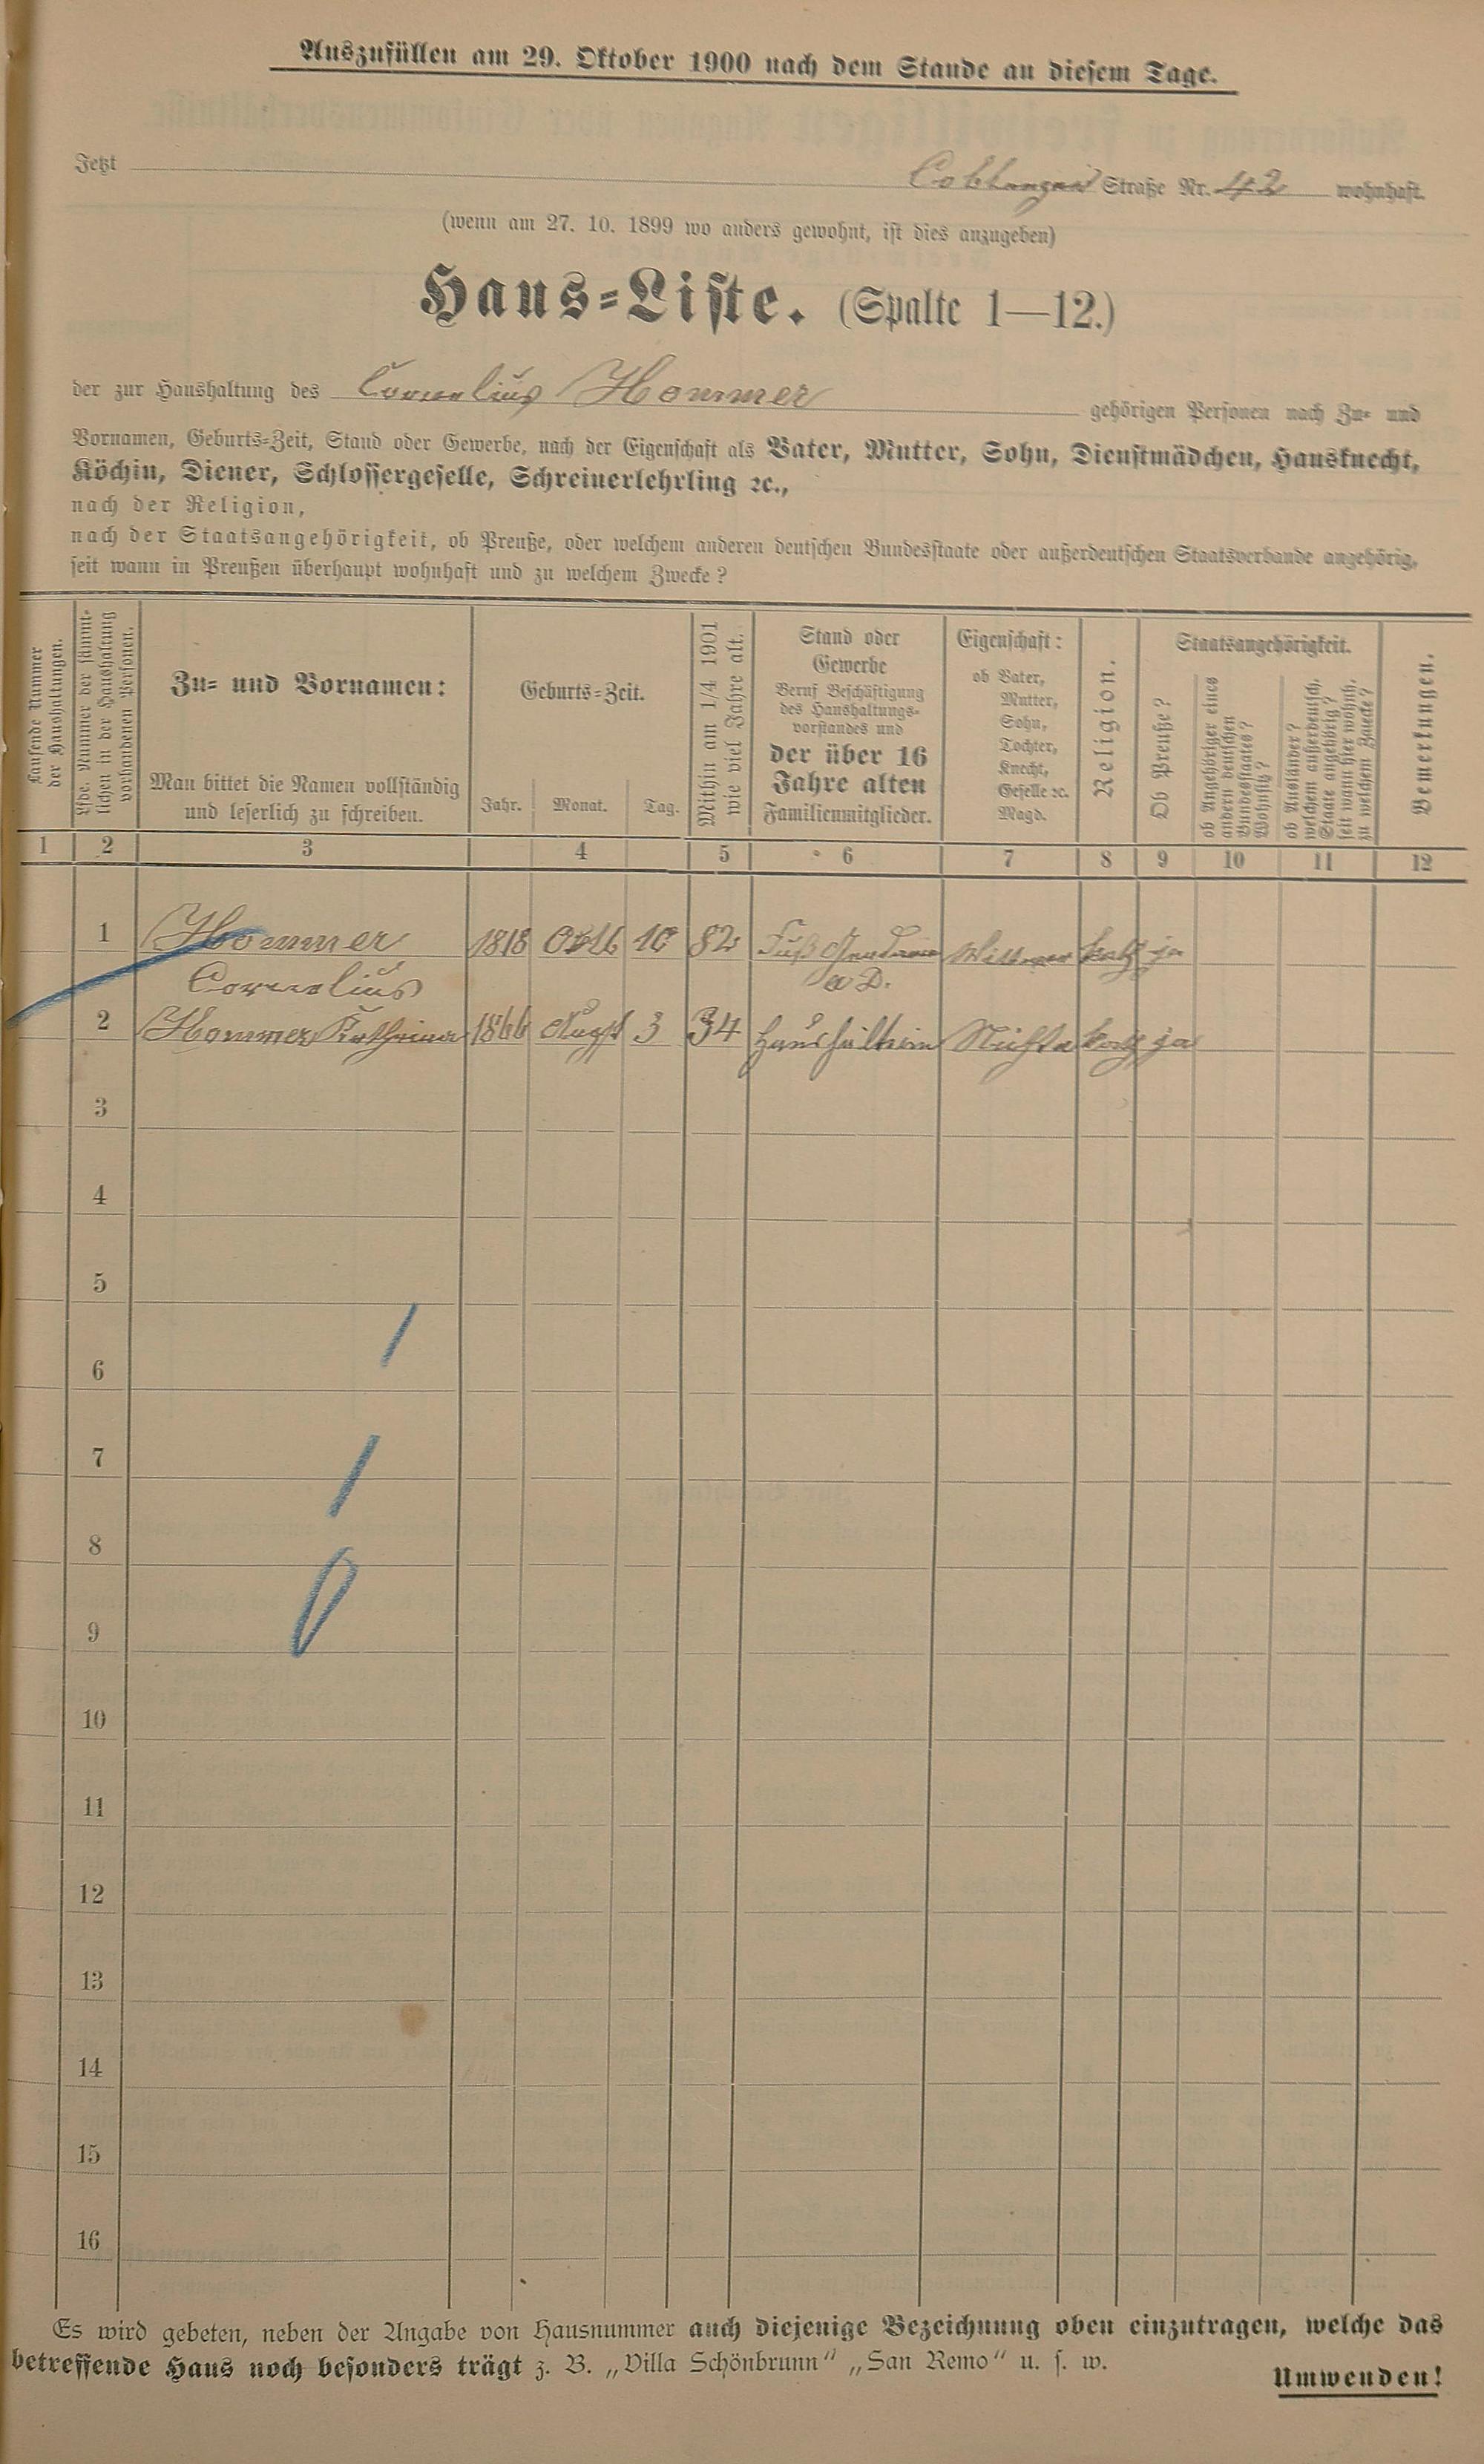 Auszufüllen am 29. Oktober 1900 nach dem Stande an diesem Tage.
Jetzt Coblenzer Straße Nr. 42 wohnhaft.
(wenn am 27. 10. 1899 wo anders gewohnt, ist dies anzugeben)
Haus-Liste. (Spalte 1—12.)
der zur Haushaltung des Cornelius Hommer gehörigen Personen nach Zu- und
Vornamen, Geburts-Zeit, Stand oder Gewerbe, nach der Eigenschaft als Vater, Mutter, Sohn, Dienstmädchen, Hausknecht,
Köchin, Diener, Schlossergeselle, Schreinerlehrling ꝛc.,
nach der Religion,
nach der Staatsangehörigkeit, ob Preuße, oder welchem anderen deutschen Bundesstaate oder außerdeutschen Staatsverbande angehörig,
seit wann in Preußen überhaupt wohnhaft und zu welchem Zwecke?
Laufende Nummer
der Haushaltungen.
Lfde. Nummer der sämmt-
lichen in der Haushaltung
vorhandenen Personen.
Zu- und Vornamen:
Man bittet die Namen vollständig
und leserlich zu schreiben.
Geburts-Zeit.
Jahr. Monat. Tag.
Mithin am 1/4 1901
wie viel Jahre alt.
Stand oder
Gewerbe
Beruf Beschäftigung
des Haushaltungs-
vorstandes und
der über 16
Jahre alten
Familienmitglieder.
Eigenschaft:
ob Vater,
Mutter,
Sohn,
Tochter,
Knecht,
Geselle ꝛc.
Magd.
Religion.
Staatsangehörigkeit.
Ob Preuße?
ob Angehöriger eines
andern deutschen
Bundesstaates?
Wohnsitz?
ob Ausländer?
welchem außerdeutsch.
Staate angehörig?
seit wann hier wohnh.
zu welchem Zwecke?
Bemerkungen.
1 2 3 4 5 6 7 8 9 10 11 12
1 Hommer 1818 Oktb 10 82 Fuß Gendarm Wittwer kath ja
Cornelius a D.
2 Hommer Katharina 1866 Augst 3 34 Haushälterin Nichte kath ja
3
4
5
6
7
8
9
10
11
12
13
14
15
16
Es wird gebeten, neben der Angabe von Hausnummer auch diejenige Bezeichnung oben einzutragen, welche das
betreffende Haus noch besonders trägt z. B. „Villa Schönbrunn" „San Remo" u. s. w.
Umwenden!